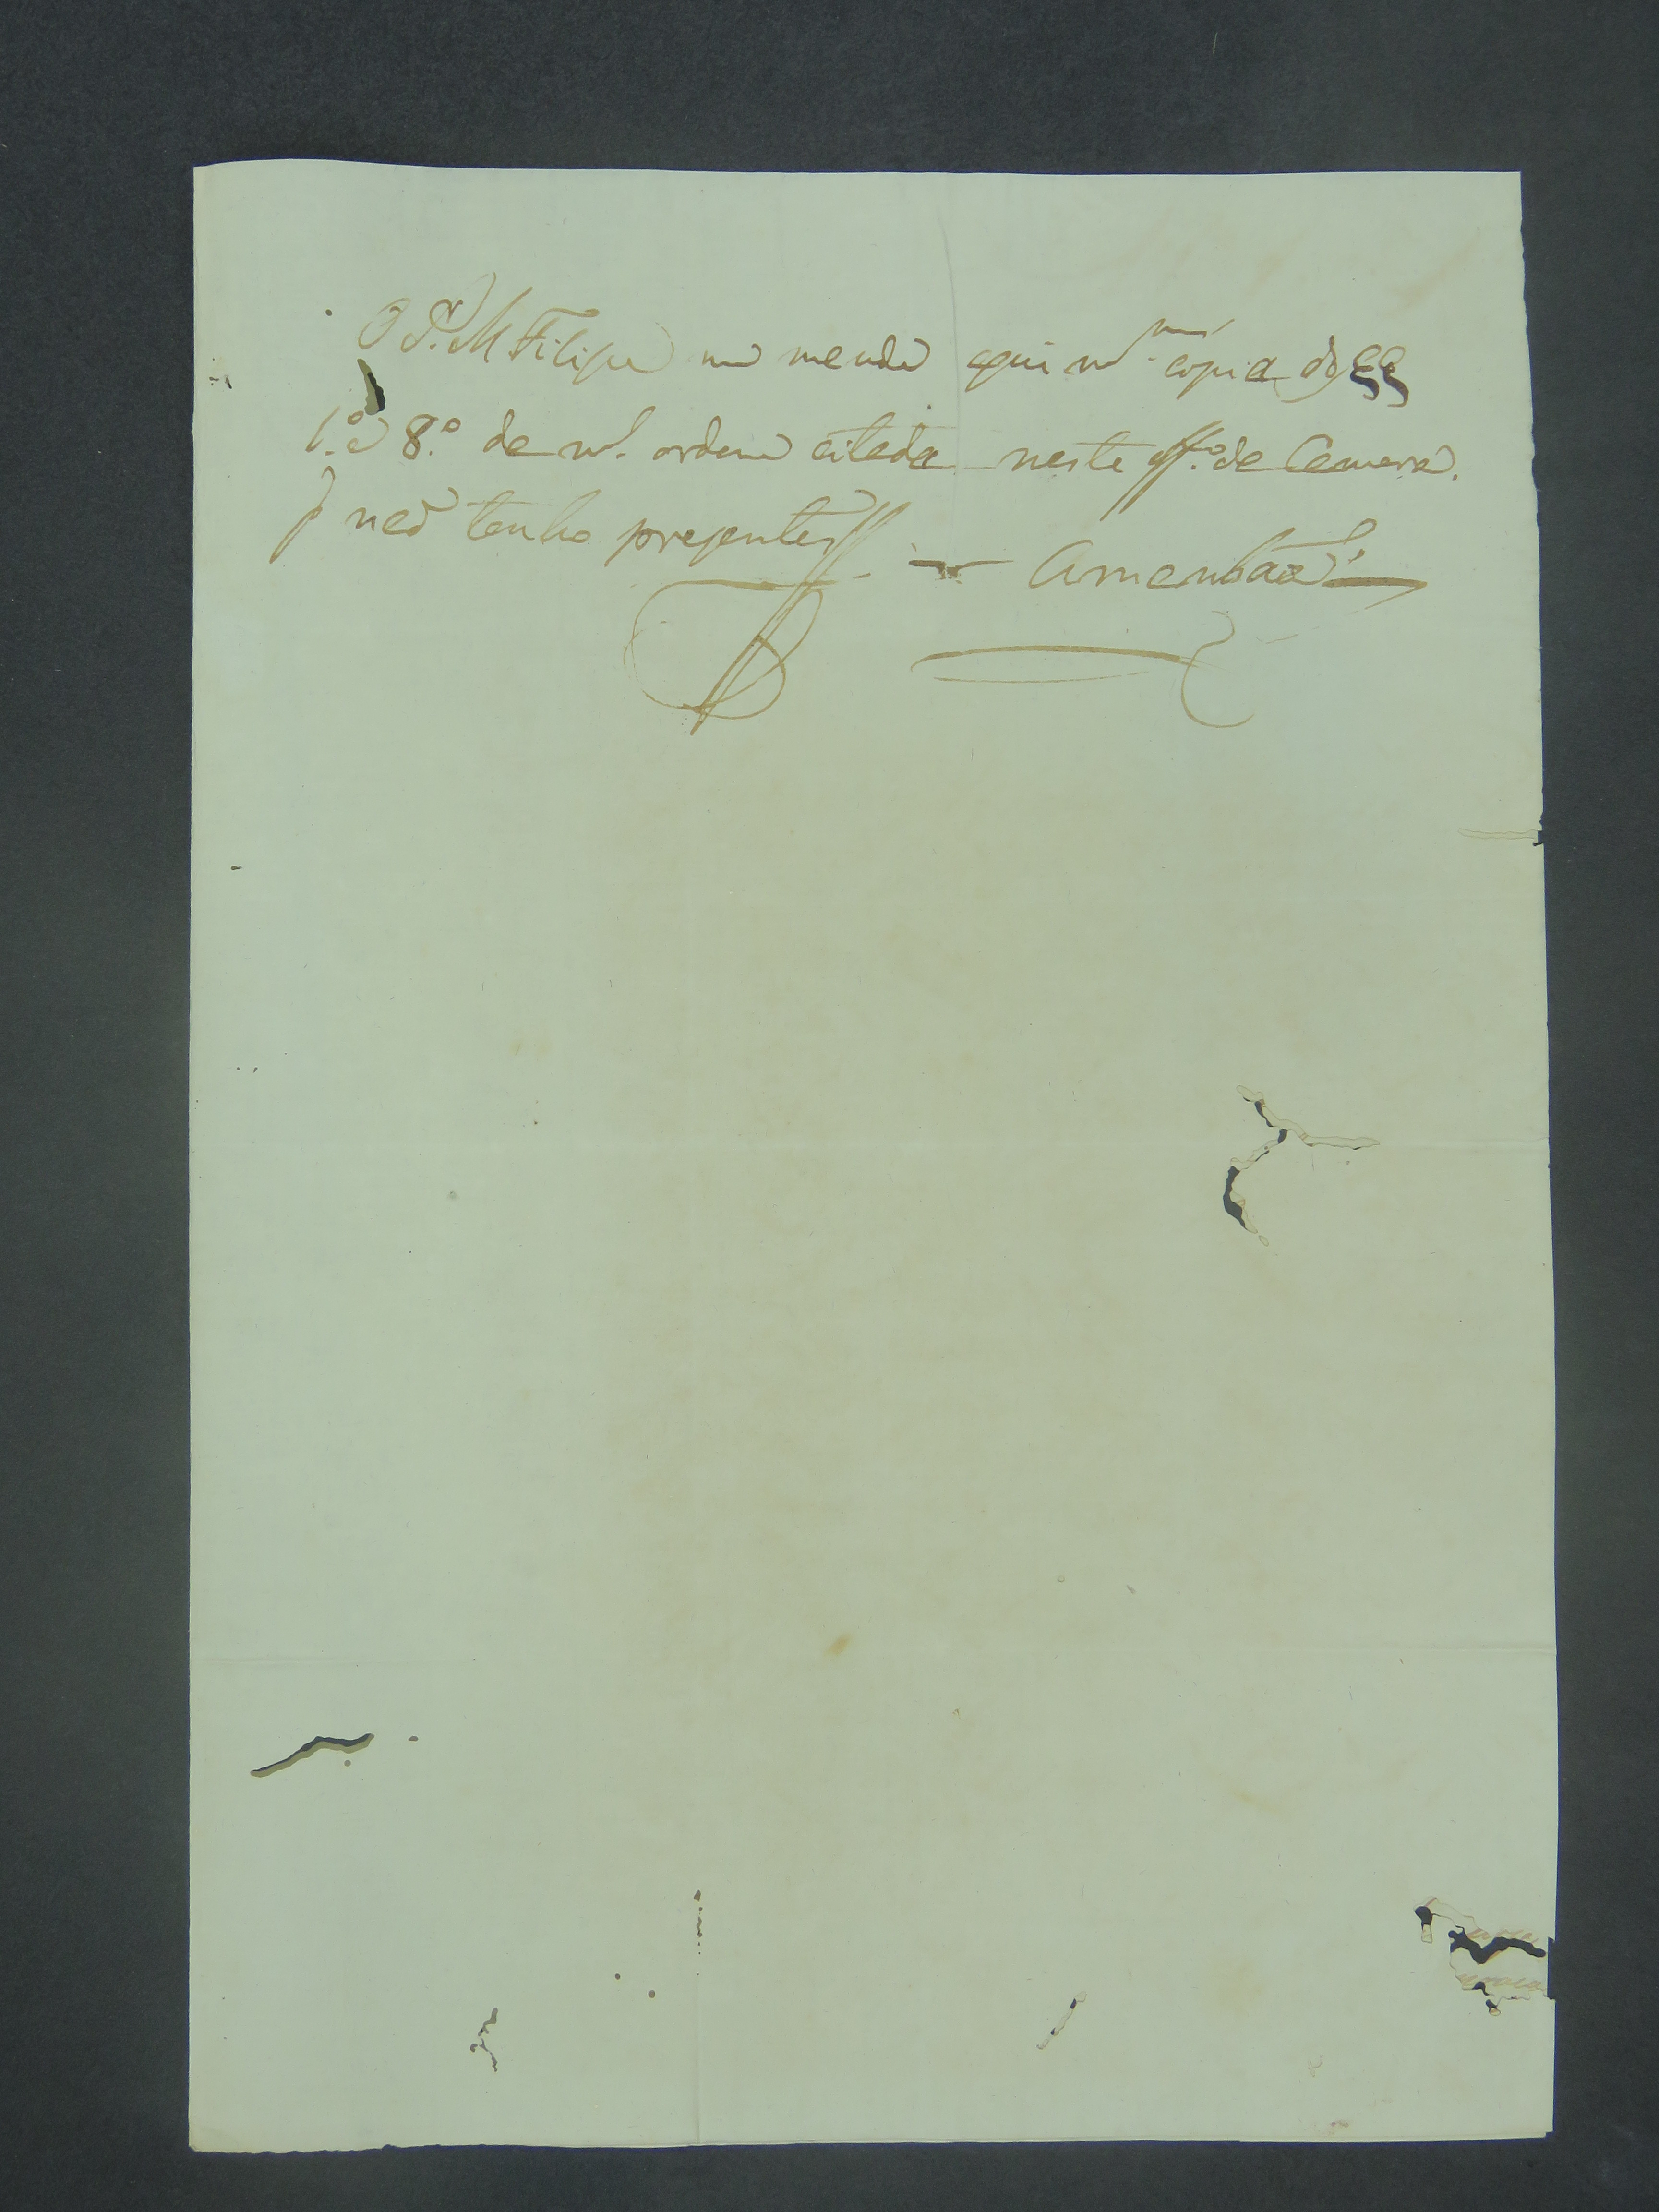 O Sr. M Filipe me mande aqui mmo copia dos §§
1.º e 8.º da m.ª ordem citada neste off.º da Camera.
q não tenho presentes